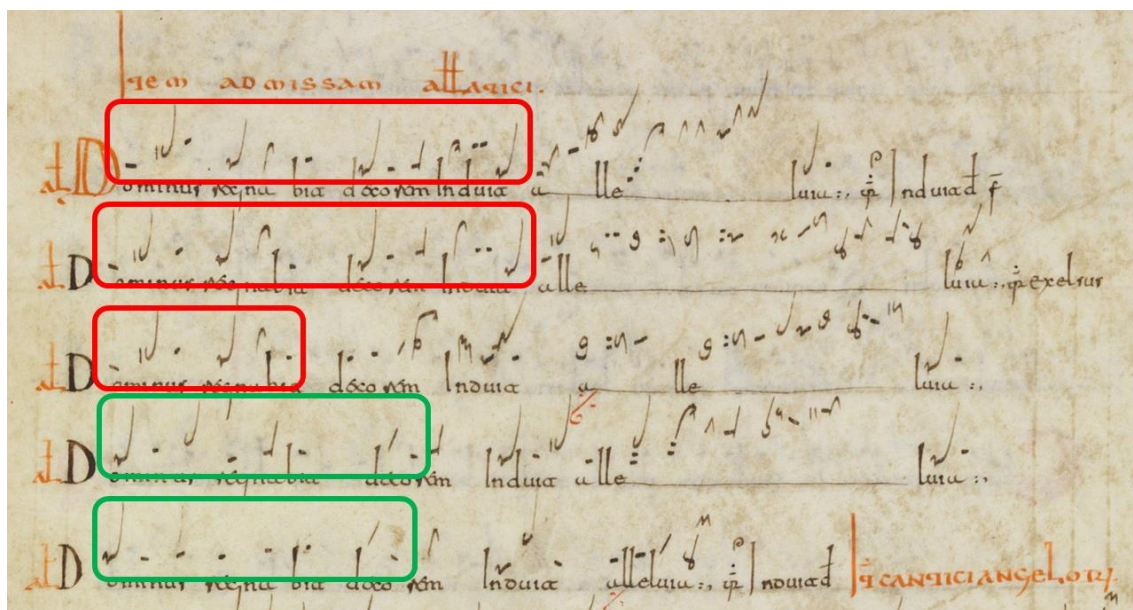 Item ad missam allatici.
all Dominus regnabit decorem Induit a lle luia :, Induit
all Dominus regnabit decorem Induit alle luia :, exelsus
all Dominus regnabit decorem Induit a lle luia :,
all Dominus regnabit decorem Induit alle luia :,
all Dominus regnabit decorem Induit alleluia :, Induit cantici angelor